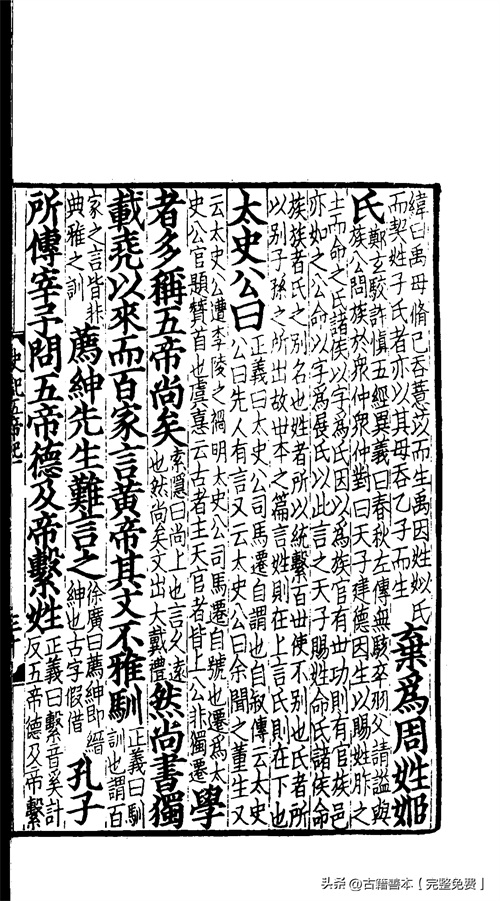 緯曰禹母脩己吞薏苡而生禹因姓姒氏
而契姓子氏者亦以其母吞乙子而生
棄爲周姓姬
氏
鄭玄駮許慎五經異義曰春秋左傳無駭卒羽父請謚與
族公問族於衆仲衆仲對曰天子建德因生以賜姓胙之
土而命之氏諸侯以字爲氏因以爲族官有世功則有官族邑
亦如之公命以字爲展氏以此言之天子賜姓命氏諸侯命
族族者氏之別名也姓者所以統繫百世使不別也氏者所
以別子孫之所出故世本之篇言姓則在上言氏則在下也
太史公曰
正義曰太史公司馬遷自謂也自叙傳云太史
公曰先人有言又云太史公曰余聞之董生又
云太史公遭李陵之禍明太史公司馬遷自號也遷爲太
史公官題贊首也虞憙云古者主天官者皆上公非獨遷
學
者多稱五帝尚矣
索隱曰尚上也言久遠
也然尚矣文出大戴禮
然尚書獨
載堯以來而百家言黃帝其文不雅馴
正義曰馴
訓也謂百
家之言皆非
典雅之訓
薦紳先生難言之
徐廣曰薦紳即縉
紳也古字假借
孔子
所傳宰予問五帝德及帝繫姓
正義曰繫音奚計
反五帝德及帝繫
史記五帝紀一
头条 @古籍善本【完整免费】